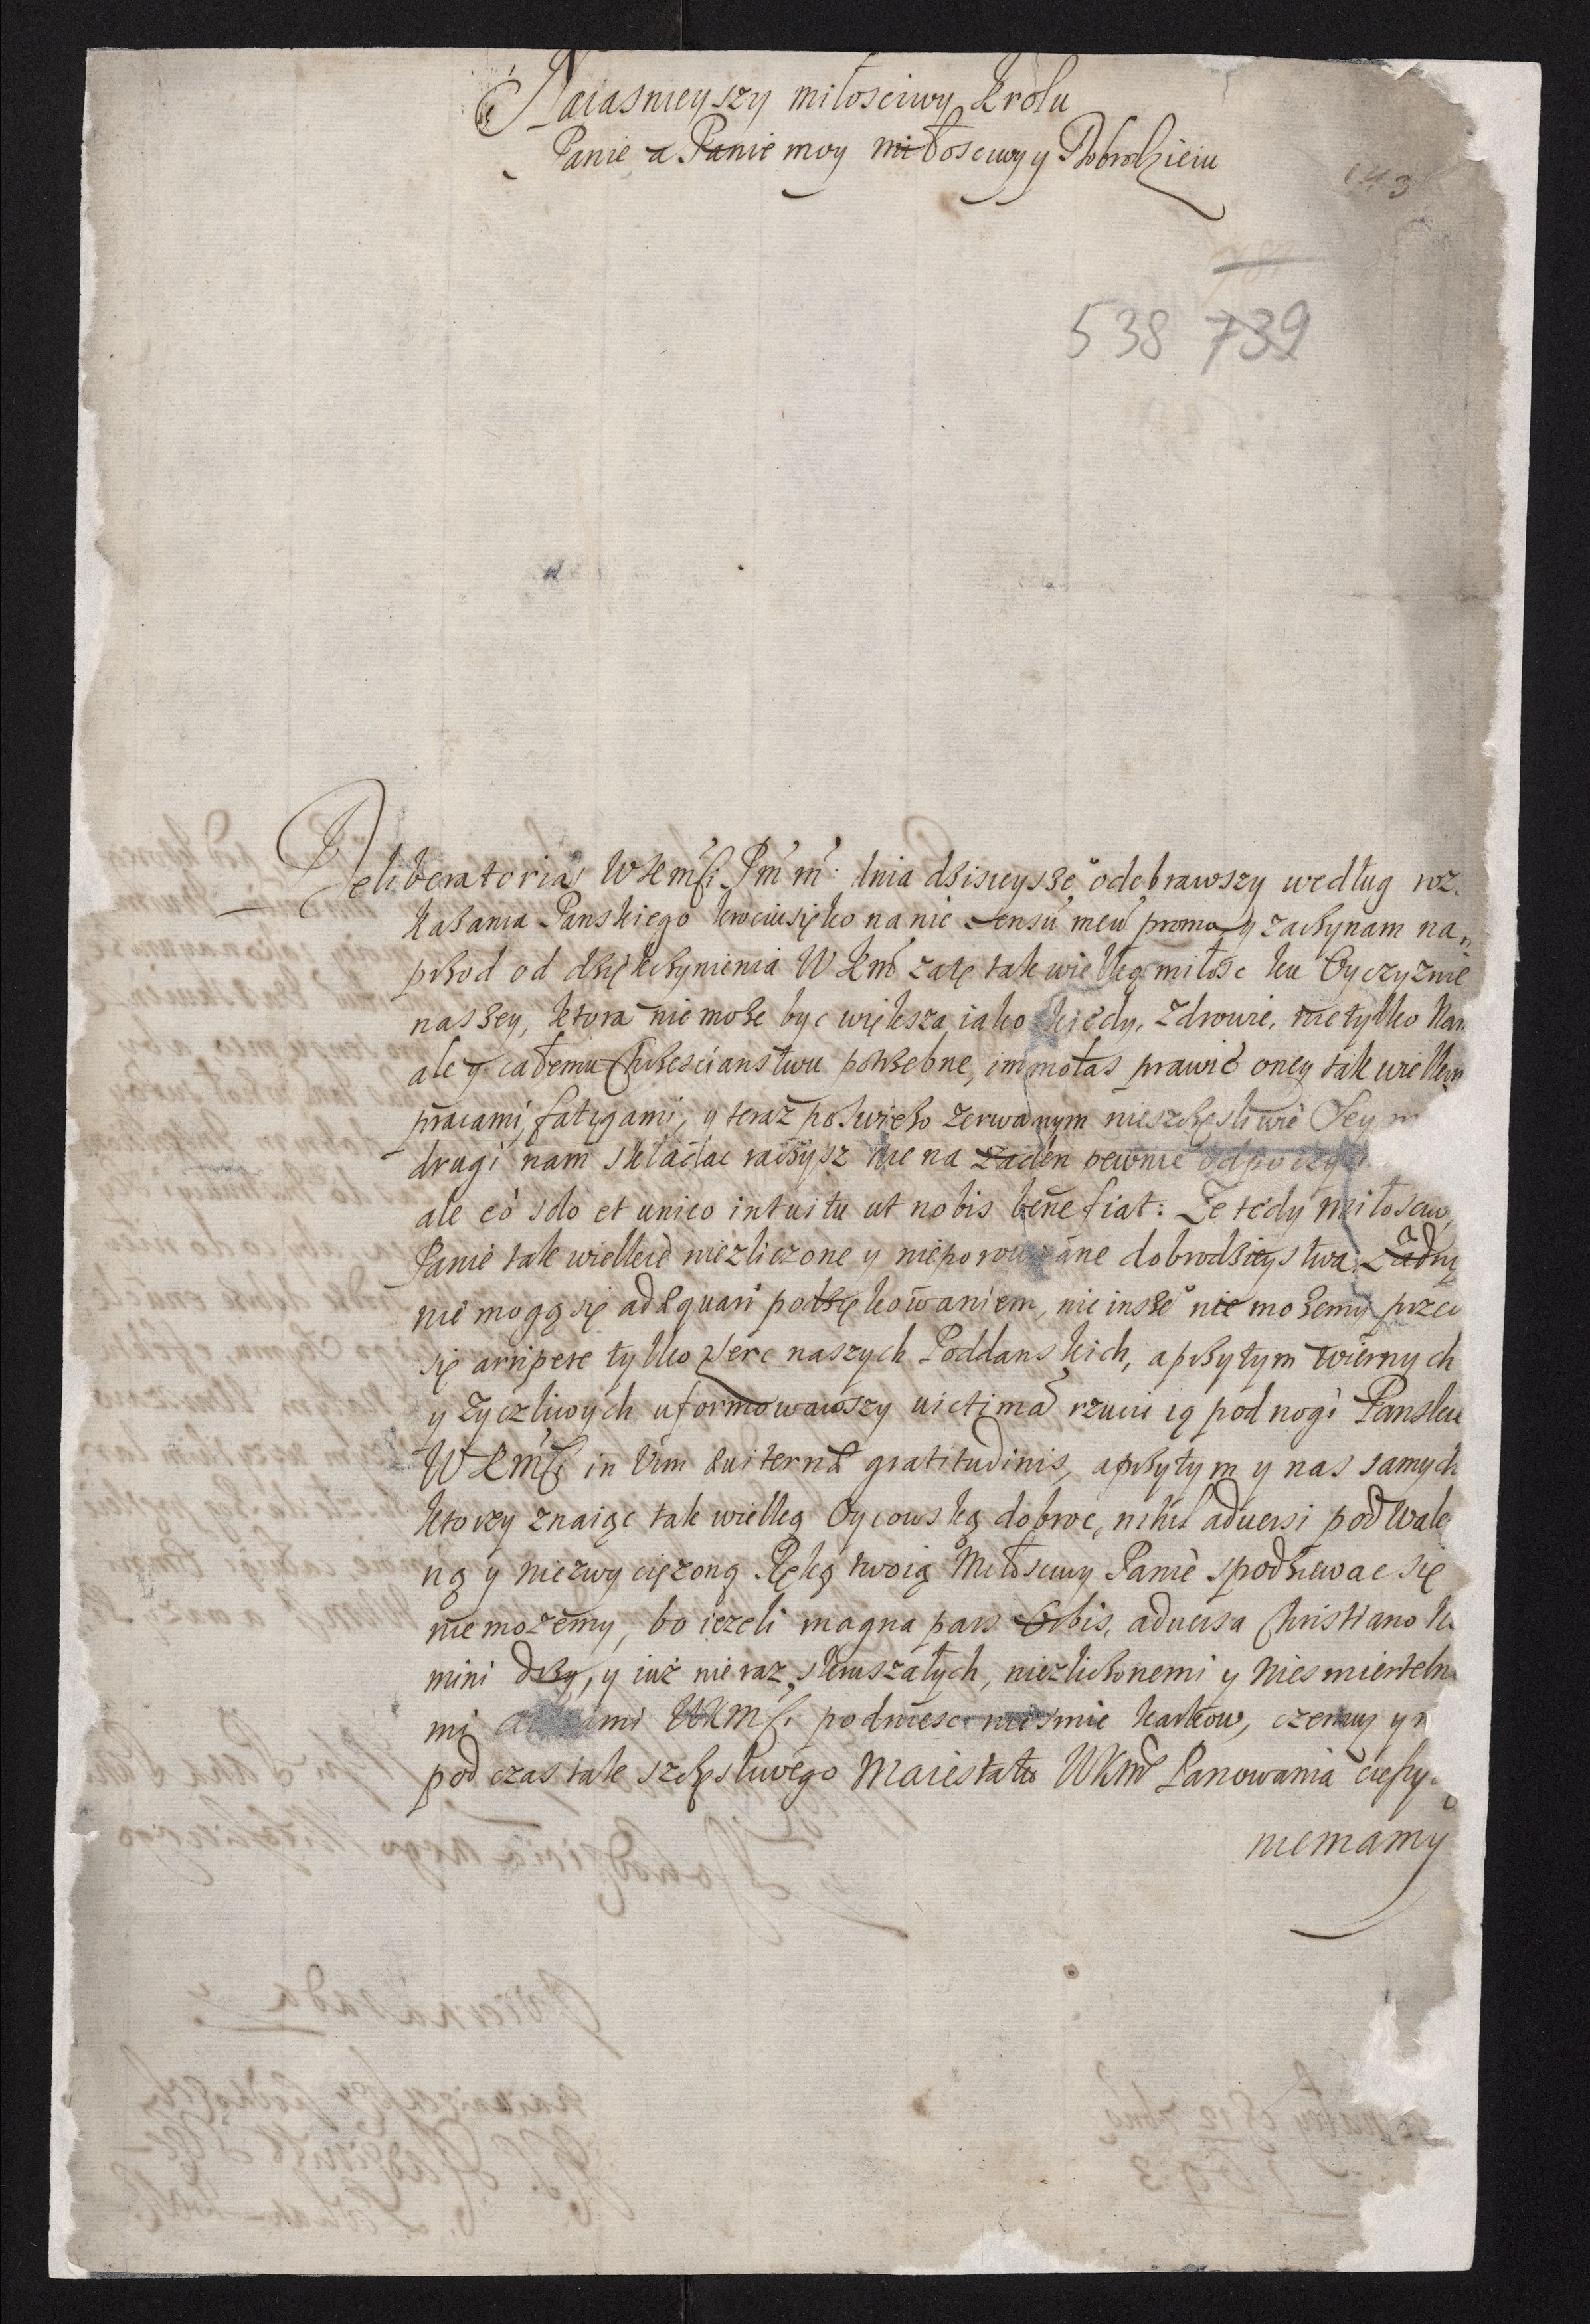 Naiasnieyszy miłosciwy Krolu
Panie a Panie moy miłosciwy y Dobrodzieiu
143
538 739
Deliberatorias WKmsci Pm m: dnia dzisieyszego odebrawszy według roz-
kazania Panskiego sensu meu y zaczynam na
przod od dziękczynienia WKm zatę tak wielką miłosc ku Oyczyznie
naszey, ktora nie moze byc większa iako kiedy, zdrowie, nie tylko Nam
ale y całemu Chrzescianstwu potrzebne, immolas prawie oney tak wielkim
pracami, fatygami, y teraz po swiezo zerwanym nieszczęsliwie Seym
drugi nam składac raczysz nie na zaden pewnie odpoczy
ale eo solo et unico intuitu ut nobis bene fiat: Ze tedy miłosciw
Panie tak wielkie niezliczone y nieporownane dobrodzieystwa zadny
nie mogą się adæquari podziękowaniem, nic insze nie mozemy przed
się arripere tylko serc naszych Poddanskich, a przytym wiernych
y zyczliwych uformowawszy uictima rzucic ią pod nogi Panskie
WKmsci in Vim æuiternæ gratitudinis, a przytym y nas samych
ktorzy znaiąc tak wielką Oycowską dobroc, nihil aduersi pod Wale
ną y niezwyciężoną Ręką twoią Miłosciwy Panie spodziewac się
nie mozemy, bo iezeli magna pars Orbis, aduersa Christiano
mini drzy, y iuz nie raz skruszałych, niezliczonemi y niesmierteln
mi WKmsci podniesc nie smie karkow, czemuz y
pod czas tak szczęsliwego Maiestatu WKm Panowania cieszy
niemamy